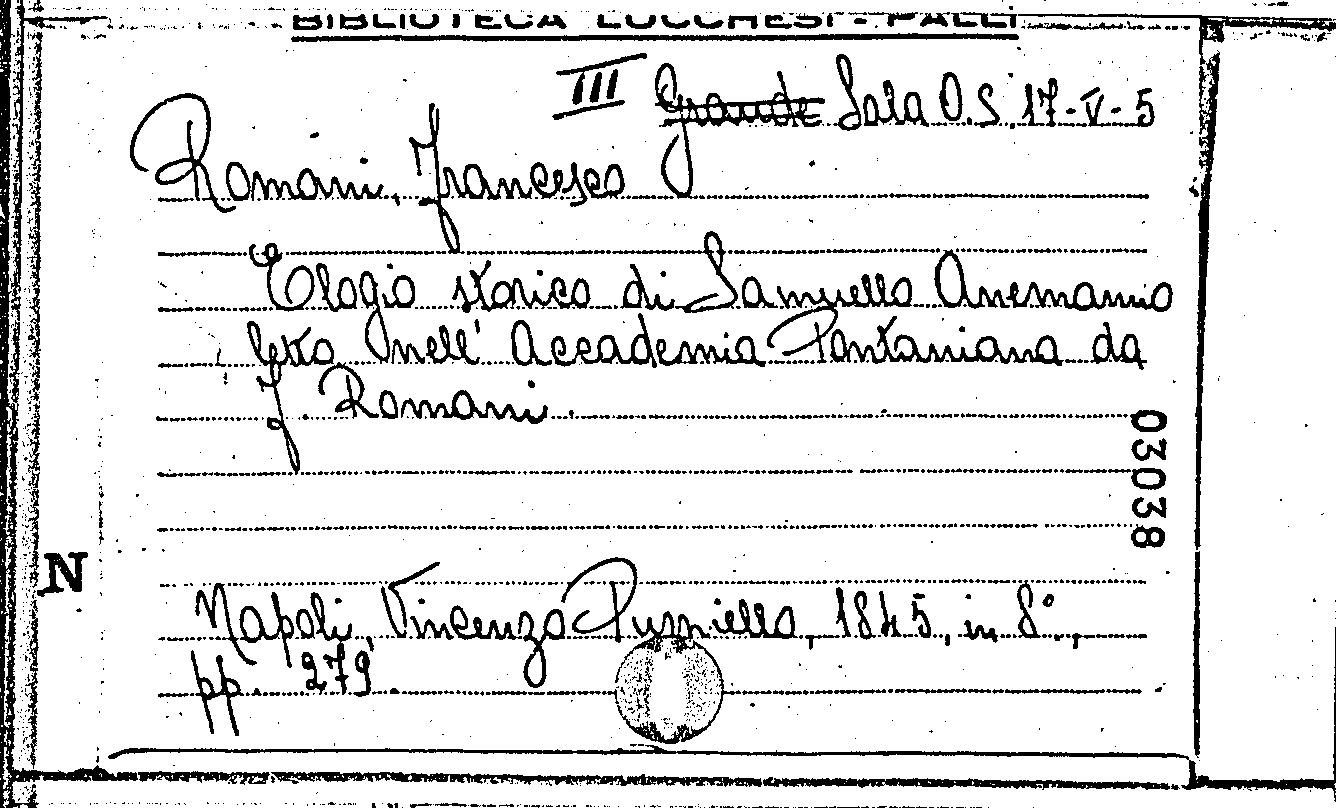 BIBLIOTECA LUCCHESI - PALLI
III Grande Sala O.S. 17-V-5
Romani, Francesco
Elogio storico di Samuello Anemanio
letto nell' Accademia Pontaniana da
F. Romani.
03038
N
Napoli, Vincenzo Puzziello, 1845, in 8°.,
pp. 279.